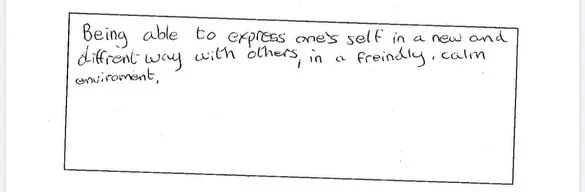 Being able to express one's self in a new and
diffrent way with others, in a freindly, calm
enviroment,